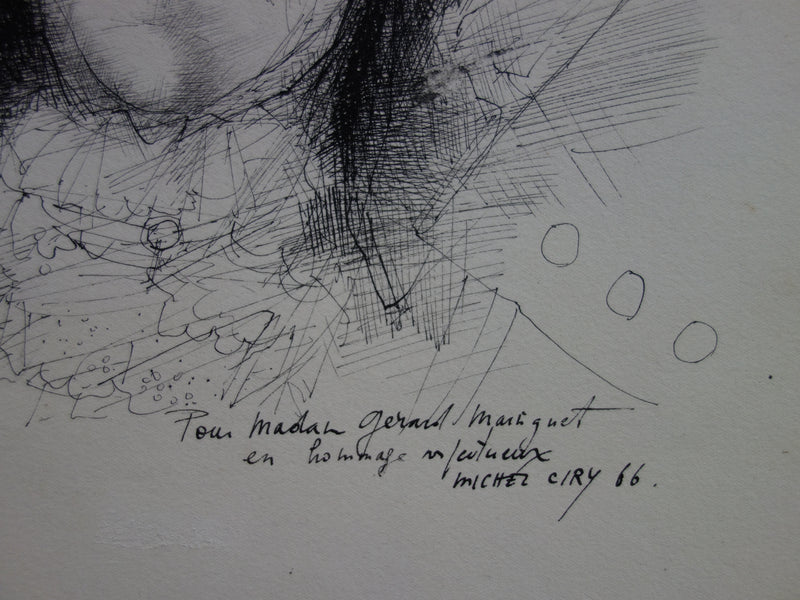 Pour Madame Gérard Mainguet
en hommage respectueux
MICHEL CIRY 66.